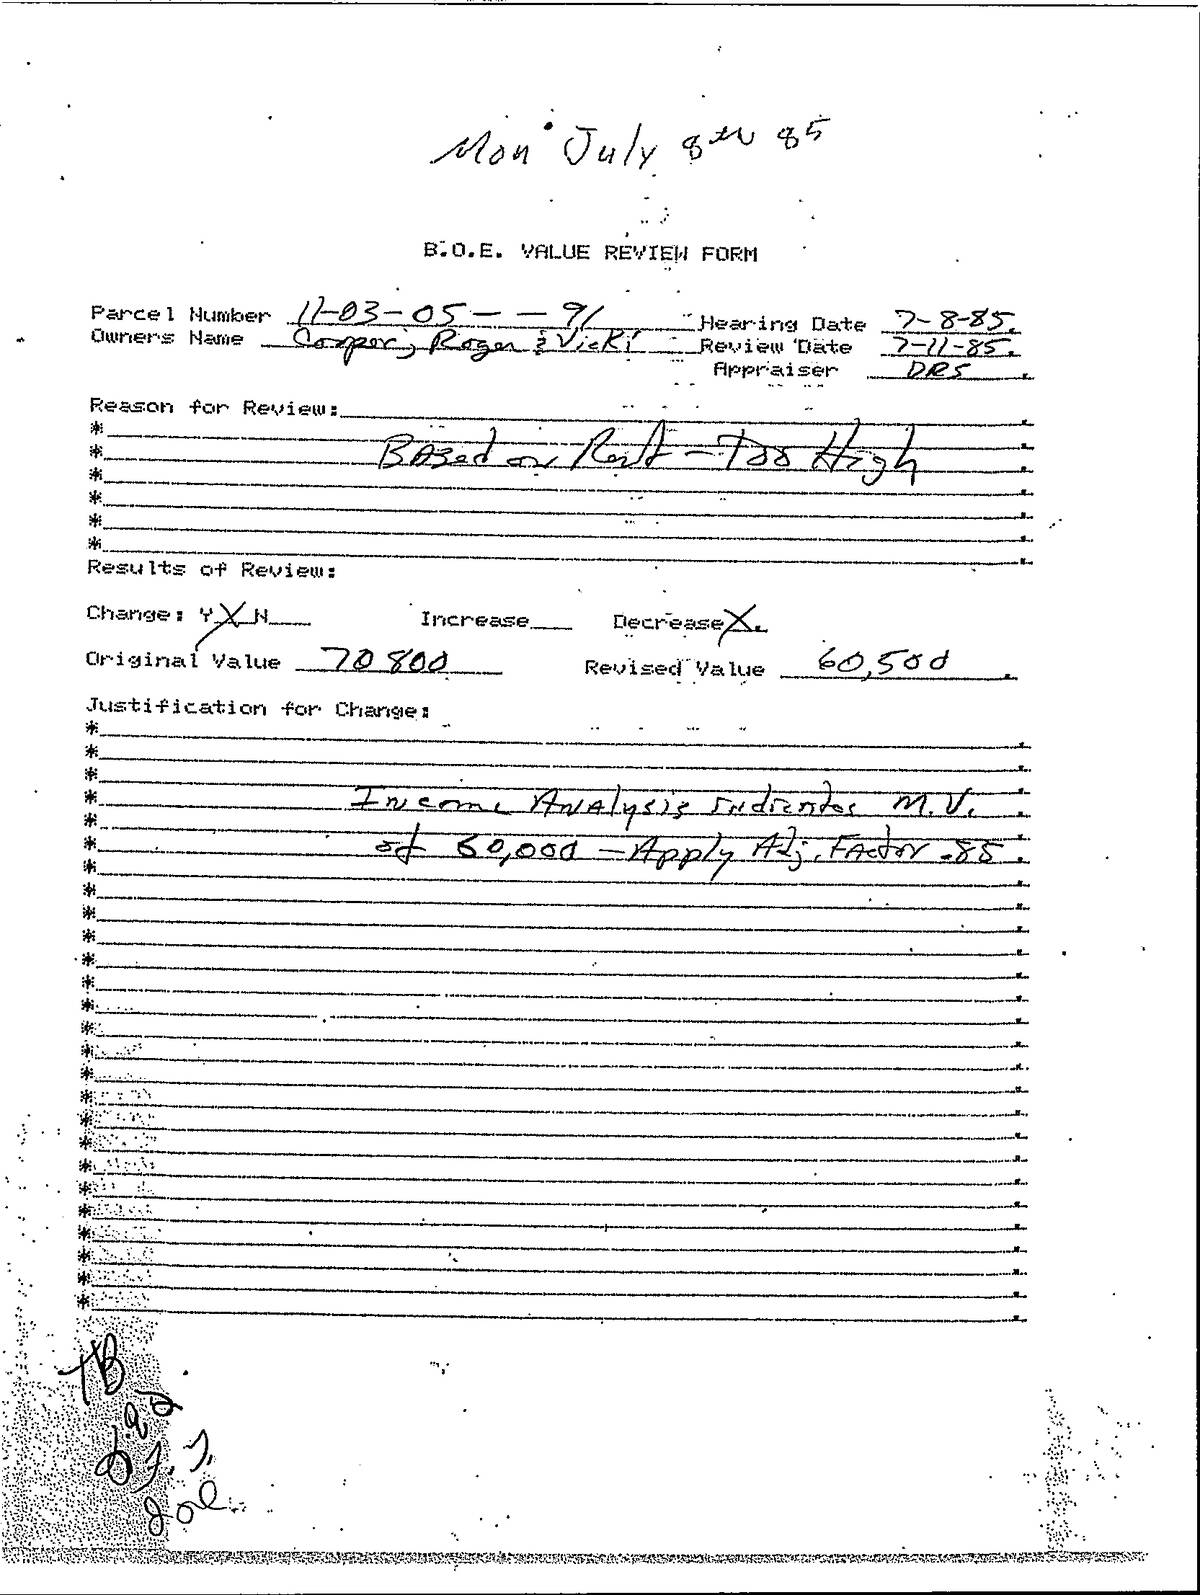 Mon July 8th 85
B.O.E. VALUE REVIEW FORM
Parcel Number 11-03-05 - - 91 Hearing Date 7-8-85.
Owners Name Cooper, Roger & Vicki Review Date 7-11-85.
Appraiser DRS
Reason for Review:
*
* Based on Rent - Too High
*
*
*
*
Results of Review:
Change: Y X N Increase Decrease X
Original Value 70800 Revised Value 60,500
Justification for Change:
*
*
*
* Income Analysis indicates M.V.
* of 60,000 - Apply Adj. Factor .85
*
*
*
*
*
*
*
*
*
*
*
*
*
*
*
*
*
*
*
*
*